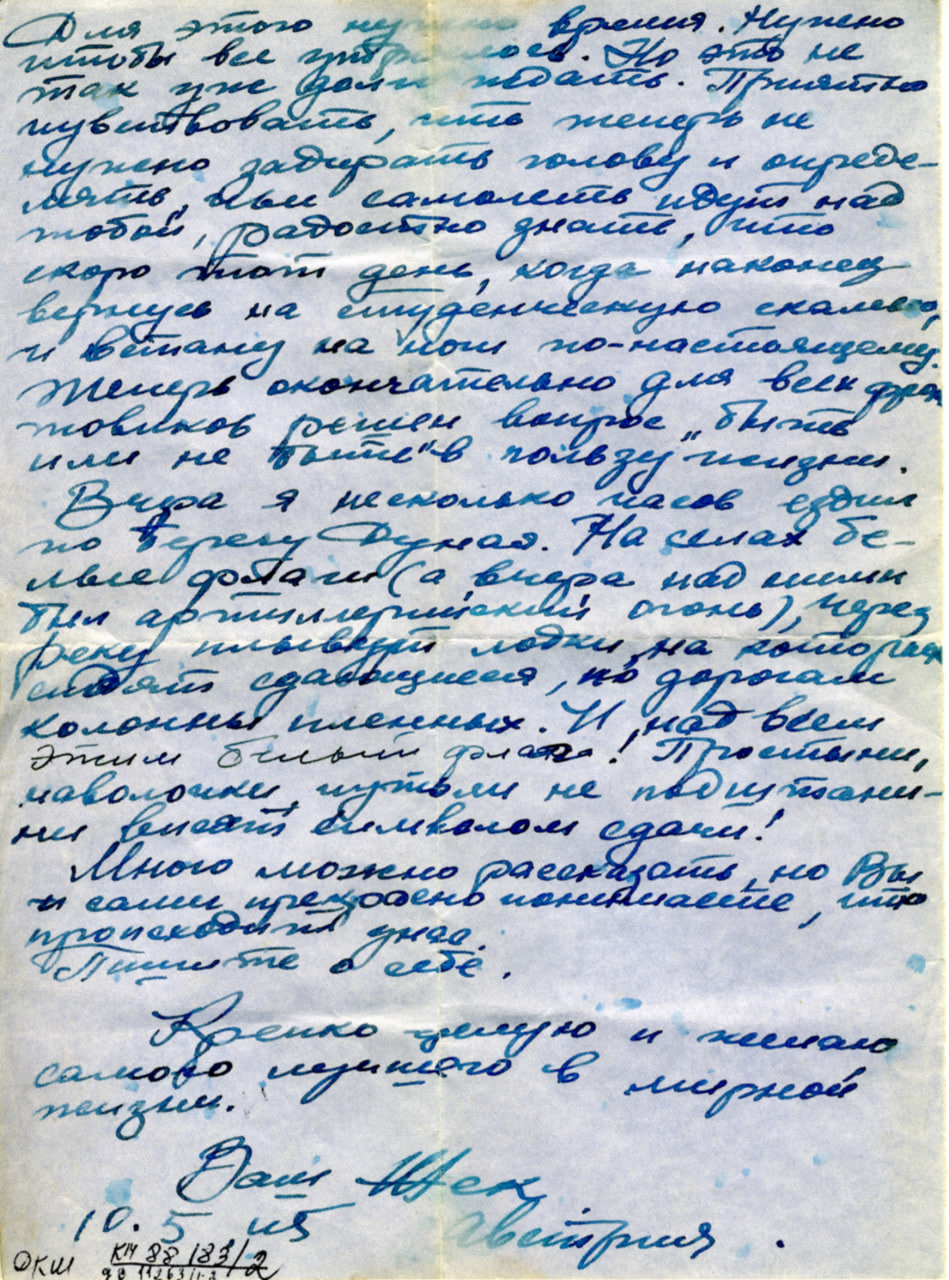 Для этого нужно время. Нужно
чтобы все утряслось. Но это не
так уж долго ждать. Приятно
чувствовать, что теперь не
нужно задирать голову и опреде-
лять, чьи самолеты идут над
тобой, радостно знать, что
скоро тот день, когда наконец
вернусь на студенческую скамью,
и встану на ноги по-настоящему.
Теперь окончательно для всех фрон
товиков решен вопрос „быть
или не быть" в пользу жизни.
Вчера я несколько часов ездил
по берегу Дуная. На селах бе-
лые флаги (а вчера над ними
был артиллерийский огонь), через
реку плывут лодки, на которых
сидят сдающиеся, по дорогам
колонны пленных. И над всем
этим белый флаг! Простыни,
наволочки, чуть ли не подштани-
ки висят символом сдачи!
Много можно рассказать, но Вы
и сами прекрасно понимаете, что
происходит у нас.
Пишите о себе.
Крепко целую и желаю
самого лучшего в мирной
жизни.
Ваш
10. 5 45 Австрия.
ОКШ КП 88183/2